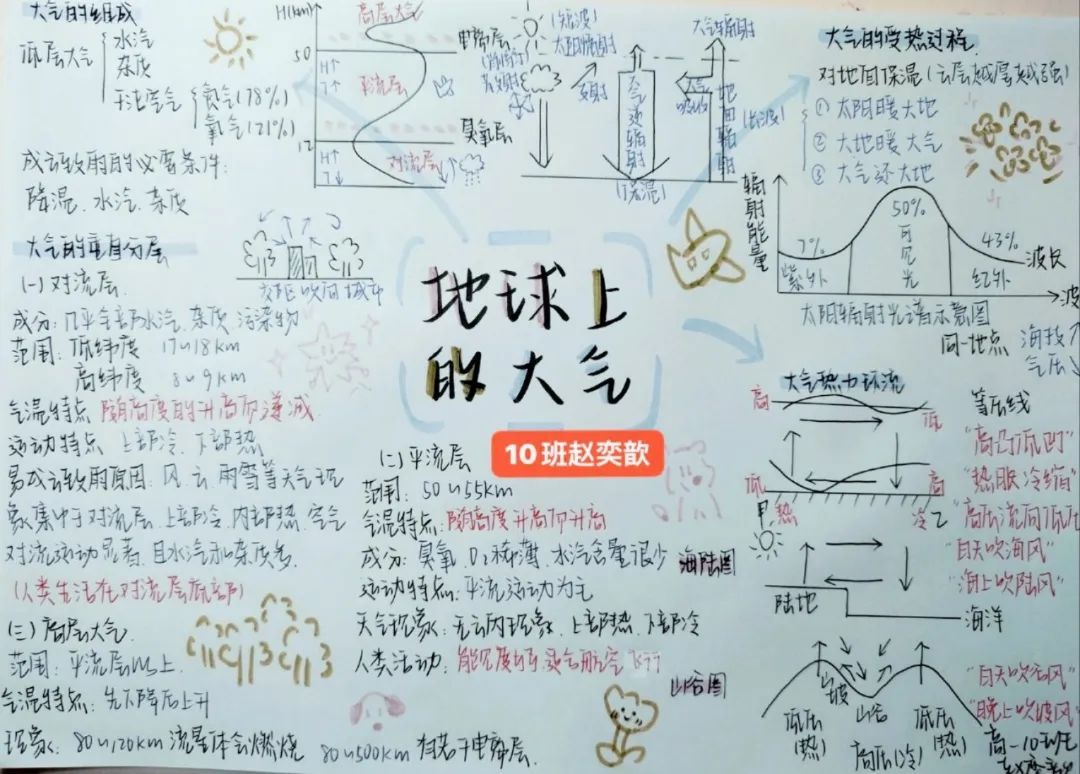 大气的组成
低层大气
水汽
杂质
干洁空气
氮气(78%)
氧气(21%)
成云致雨的必要条件:
降温、水汽、杂质
大气的垂直分层
(一)对流层
成分:几乎全部水汽、杂质、污染物
范围:低纬度 17~18km
高纬度 8~9km
气温特点 随高度的升高而递减
运动特点 上部冷、下部热
易成云致雨原因:风、云、雨雪等天气现
象集中于对流层、上部冷、内部热、空气
对流运动显著、且水汽和杂质多
(人类生活在对流层底部)
(三)高层大气
范围:平流层以上
气温特点:先下降后上升
现象:80~120km 流星体会燃烧 80~500km 有若干电离层
H(km)
高层大气
电离层
50
H↑
T↑
平流层
臭氧层
12
H↑
T↓
对流层
城市
(短波)
太阳辐射
反射
大气逆辐射
(保温)
大气辐射
吸收
地面辐射
(长波)
地球上
的大气
10班赵奕歆
(二)平流层
范围:50~55km
气温特点:随高度升高而升高
成分:臭氧、O₂稀薄、水汽含量很少
运动特点:平流运动为主
天气现象:无云雨现象、上部热、下部冷
人类活动:能见度好、适合航空飞行
大气的受热过程
对地面保温(云层越厚越强)
① 太阳暖大地
② 大地暖大气
③ 大气还大地
辐射能量
7%
紫外
50%
可见光
43%
红外
波长
太阳辐射光谱示意图
同一地点
海拔↑
气压↓
大气热力环流
高
低
低
高
甲
热
冷
乙
等压线
"高凸低凹"
"热胀冷缩"
"高压流向低压
海陆图
陆地
海洋
"白天吹海风"
"海上吹陆风"
山谷图
山坡
山谷
低压
(热)
高压(冷)
低压
(热)
"白天吹谷风"
"晚上吹坡风"
高一10班